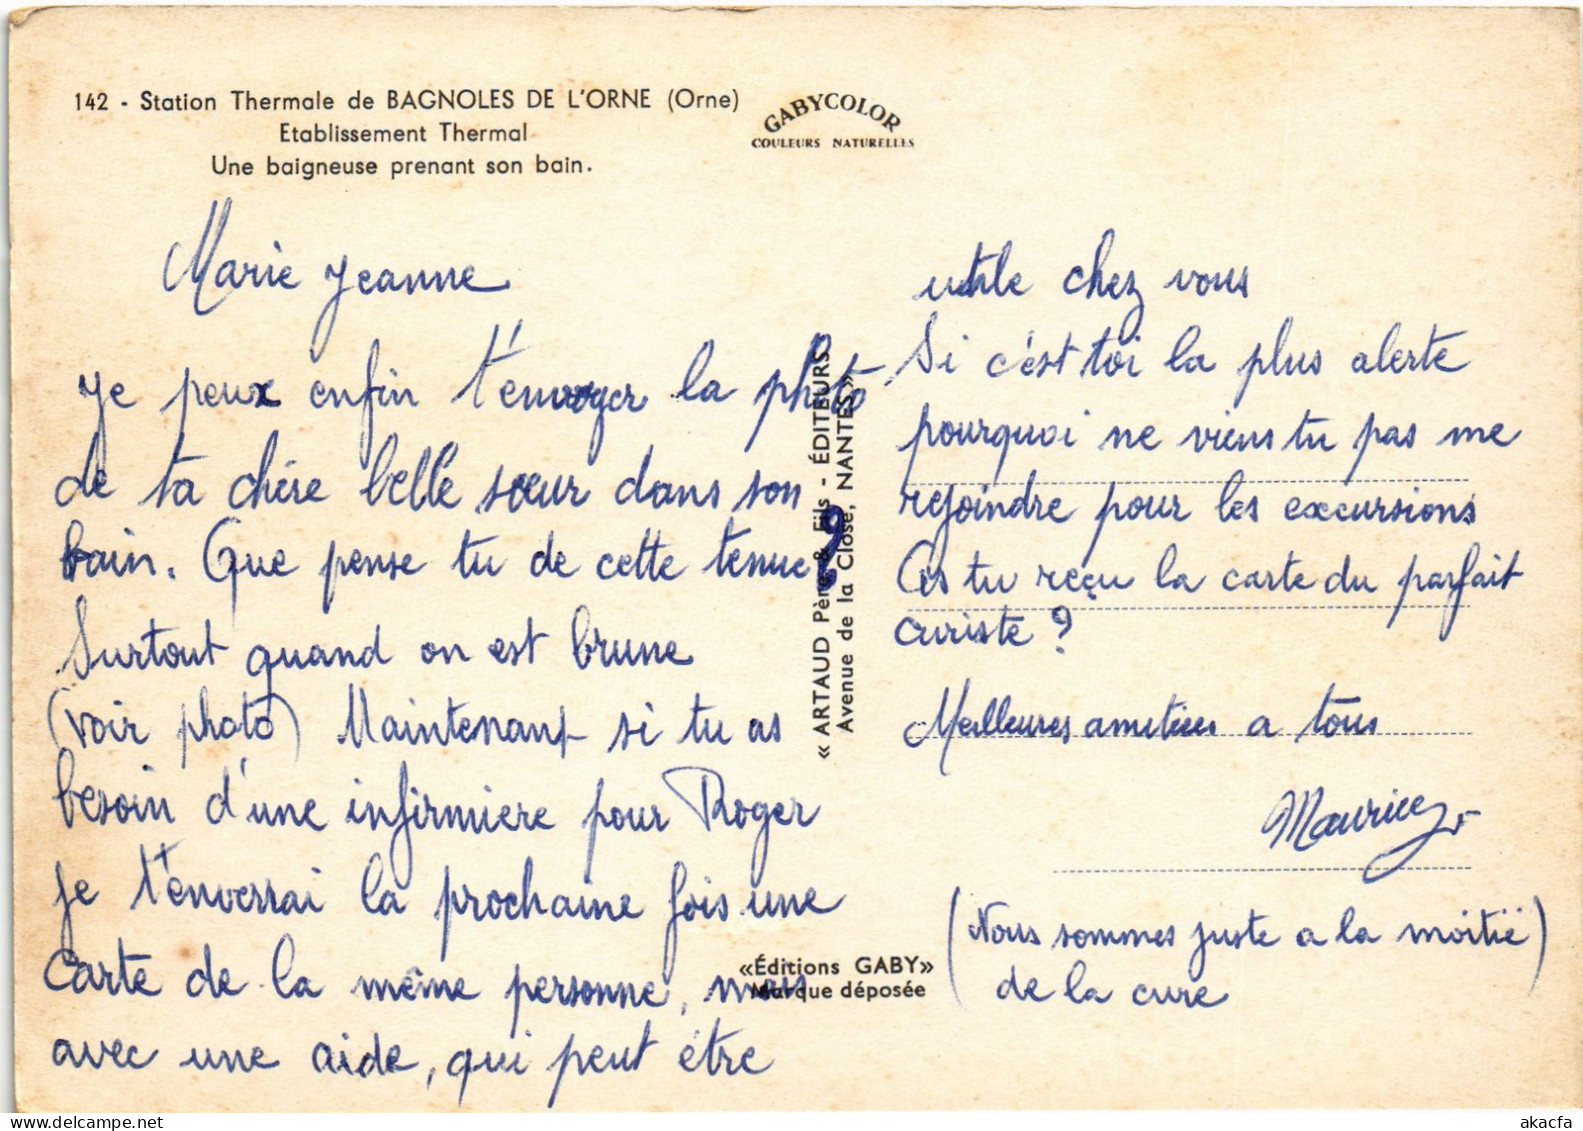 142 - Station Thermale de BAGNOLES DE L'ORNE (Orne)
Etablissement Thermal
Une baigneuse prenant son bain.
GABYCOLOR
COULEURS NATURELLES
Marie Jeanne
Je peux enfin t'envoyer la photo
de ta chère belle sœur dans son
bain. Que pense tu de cette tenue?
Surtout quand on est brune
(voir photo) Maintenant si tu as
besoin d'une infirmiere pour Roger
je t'enverrai la prochaine fois une
carte de la même personne, mais
avec une aide, qui peut étre
« ARTAUD Père & Fils - ÉDITEURS
Avenue de la Close, NANTES»
«Éditions GABY»
Marque déposée
utile chez vous
Si c'est toi la plus alerte
pourquoi ne viens tu pas me
rejoindre pour les excursions
As tu reçu la carte du parfait
curiste ?
Meilleures amitiées a tous
Maurice
(Nous sommes juste a la moitié)
de la cure
www.delcampe.net
akacfa